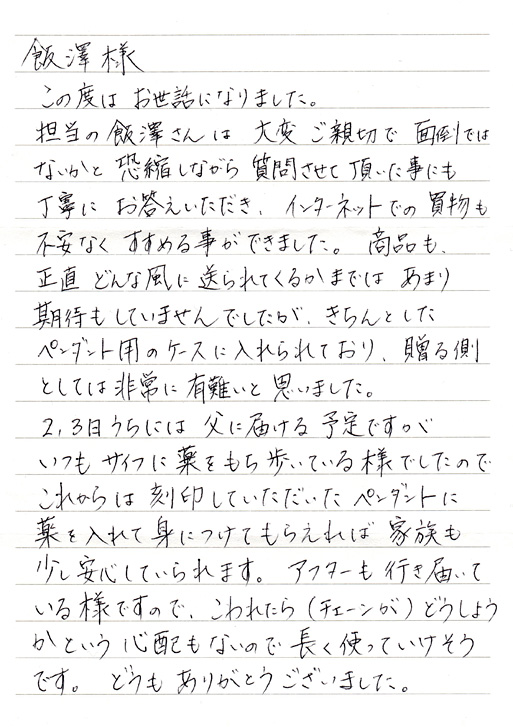 飯澤様
この度は お世話になりました。
担当の飯澤さんは 大変 ご親切で 面倒では
ないかと 恐縮しながら 質問させて頂いた事にも
丁寧に お答えいただき、インターネットでの買物も
不安なく すすめる事ができました。 商品も、
正直 どんな風に送られてくるかまでは あまり
期待もしていませんでしたが、きちんとした
ペンダント用のケースに入れられており、贈る側
としては非常に有難いと思いました。
2,3日うちには 父に届ける予定ですが
いつも サイフに薬をもち歩いている様でしたので
これからは 刻印していただいた ペンダントに
薬を入れて身につけてもらえれば 家族も
少し安心していられます。 アフターも行き届いて
いる様ですので、こわれたら(チェーンが)どうしよう
かという 心配もないので 長く使っていけそう
です。 どうも ありがとうございました。